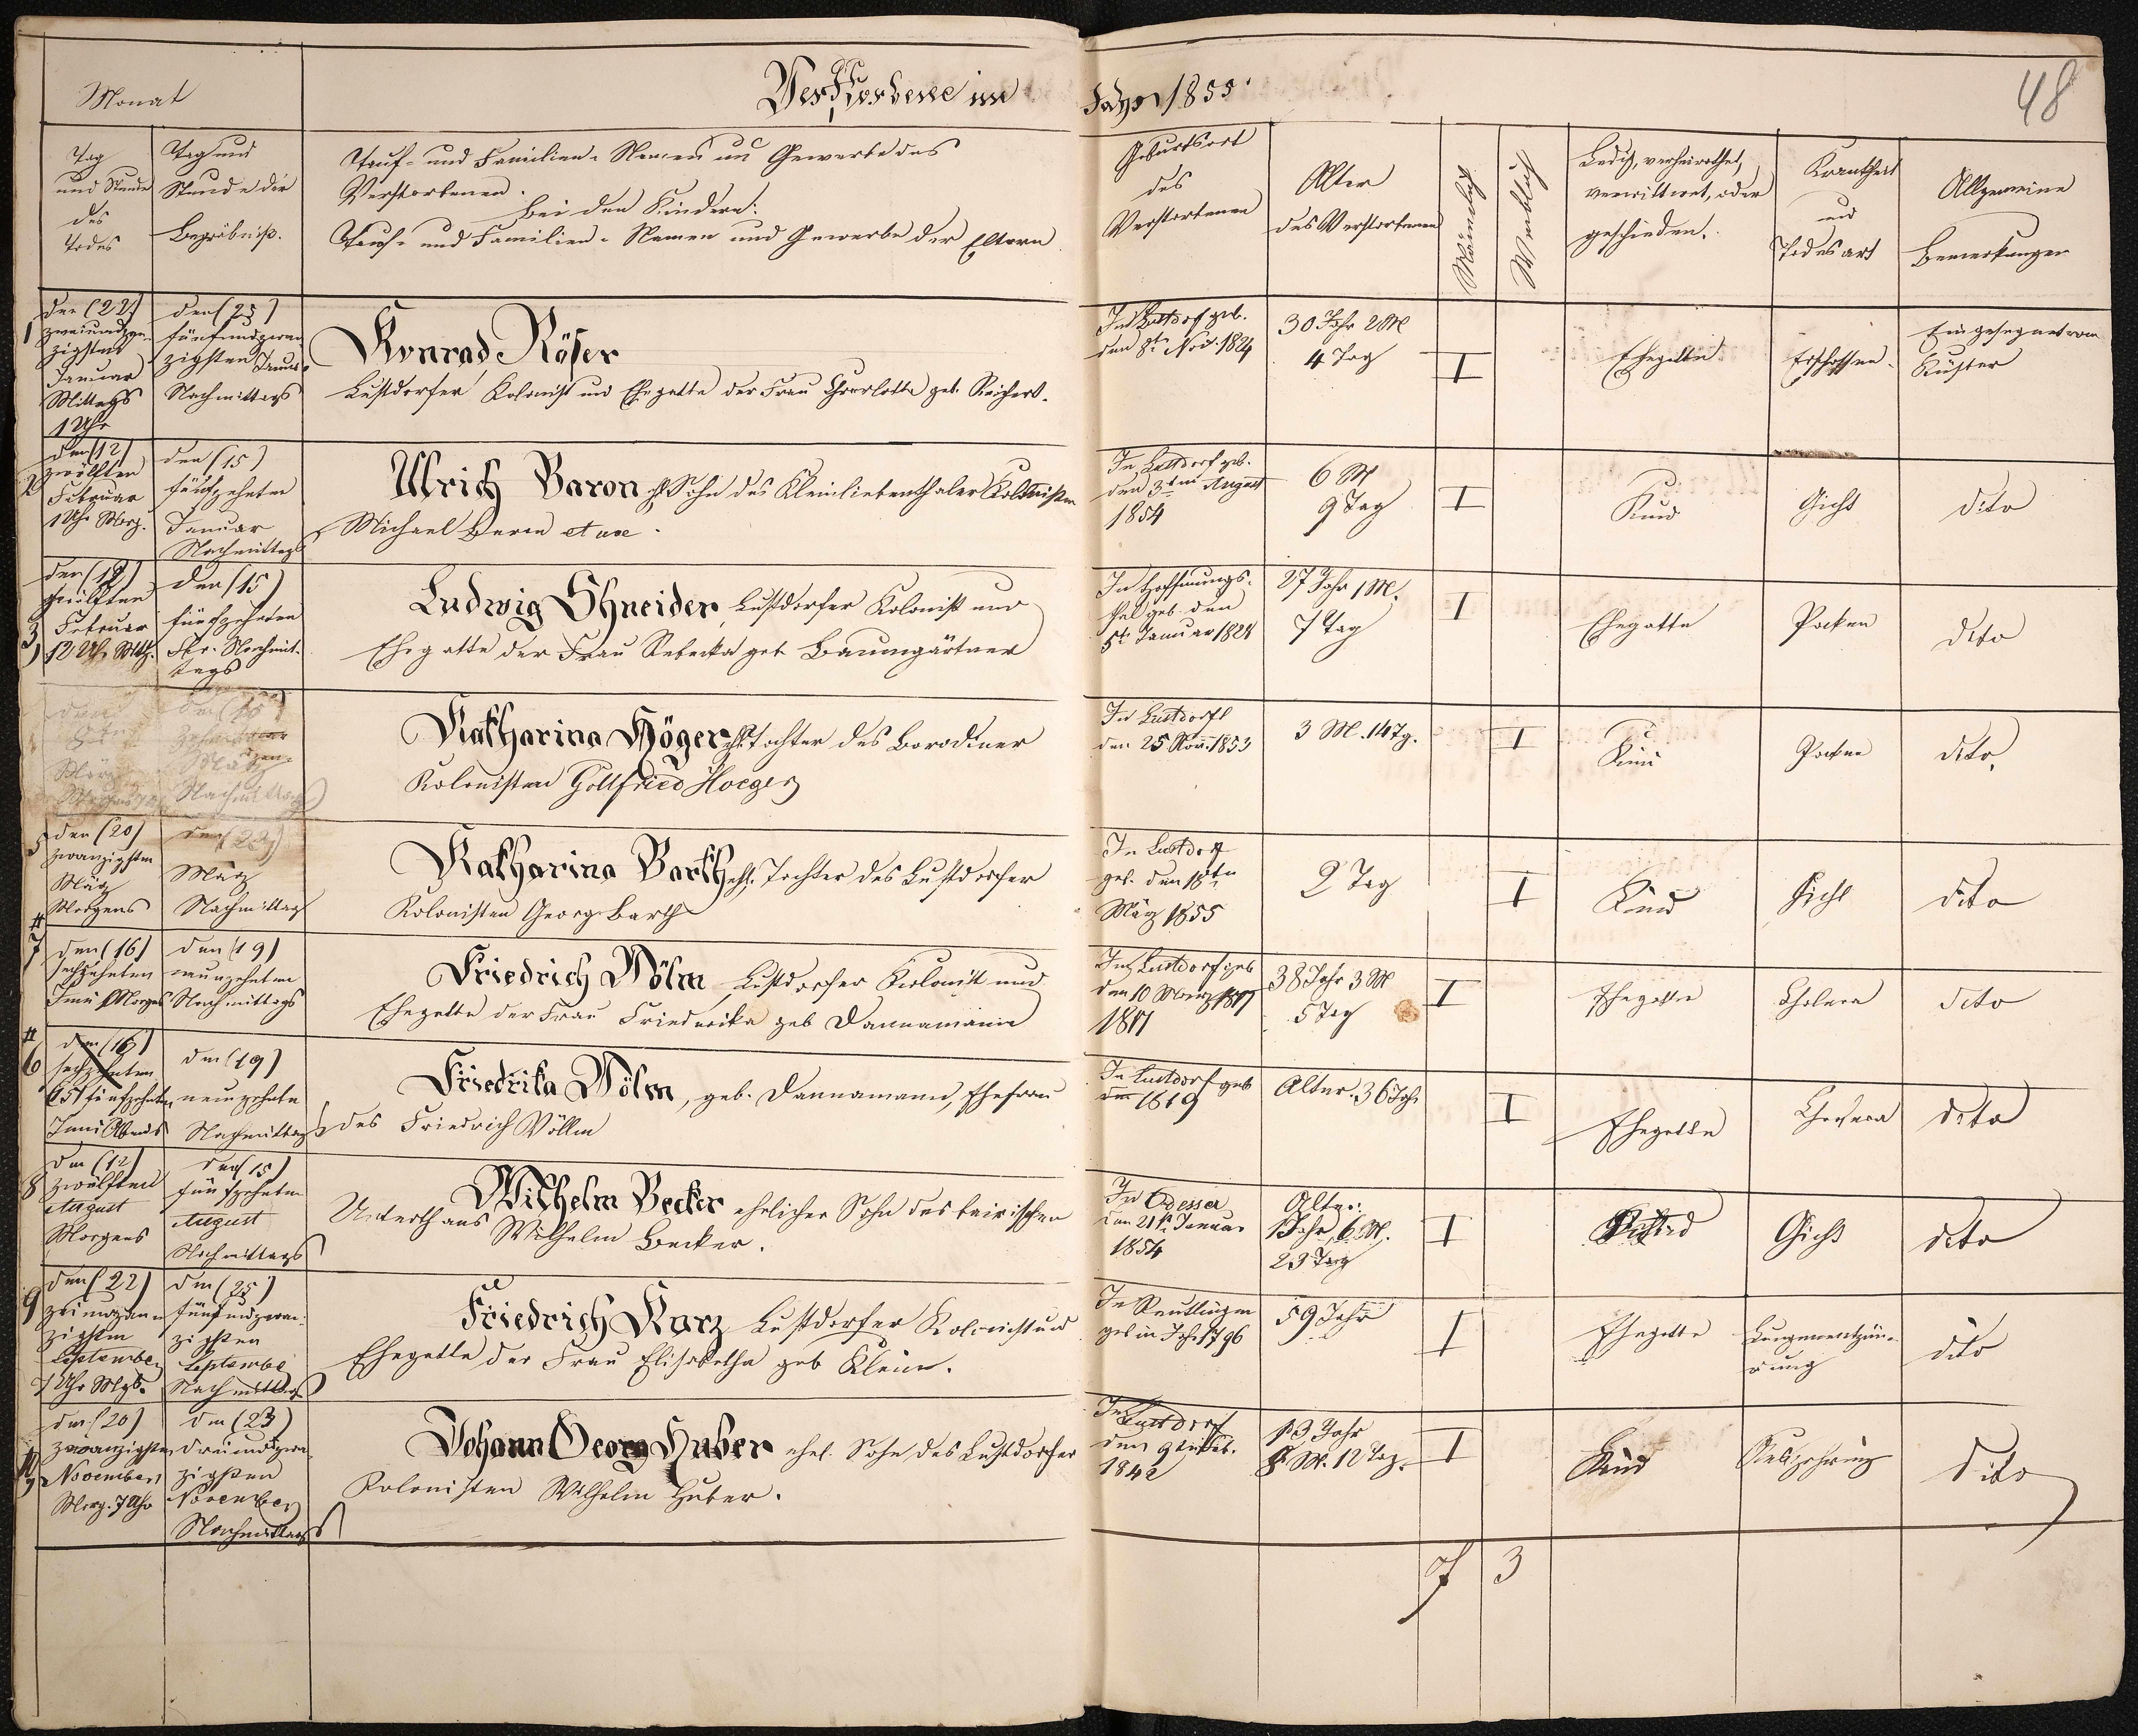 Verstorbene im Jahre 1855.
48
Monat
Tag
und Stunde
des
Todes
Tag und
Stunde der
Begräbniß.
Tauf- und Familien-Namen und Gewerbe des
Verstorbenen.
Bei den Kindern:
Tauf- und Familien-Namen und Gewerbe der Eltern
Geburtsort
des
Verstorbenen
Alter
des Verstorbenen
Männlich
Weiblich
Ledig, verheirathet,
verwittwet, oder
geschieden.
Krankheit
und
Todesart
Allgemeine
Bemerkungen
1
den (22)
zweiundzwan-
zigsten
Januar
Mittags
1 Uhr
den (25)
fünfundzwan-
zigsten Januar
Nachmittags
Konrad Röser
Lustdorfer Kolonist und Ehegatte der Frau Charlotte geb. Reichert.
In Lustdorf geb.
den 8ten Nov. 1824
30 Jahr 2 M
4 Tag
I
Ehegatte
Erschossen.
Eingesegnet vom
Küster
2
den (12)
zwölften
Februar
1 Uhr Morg.
den (15)
fünfzehnten
Januar
Nachmittags
Ulrich Baron ehl. Sohn des Kleinliebenthaler Kolonisten
Michael Baron et ux.
In Lustdorf geb.
den 3ten August
1854
6 M
9 Tag
I
Kind
Gicht
dito
3
den (12)
zwölften
Februar
12 Uhr Mtth.
den (15)
fünfzehnten
Fbr. Nachmit-
tags
Ludwig Schneider, Lustdorfer Kolonist und
Ehegatte der Frau Rebecka geb Baumgärtner
In Hoffnungs-
thal geb. den
5t Januar 1828
27 Jahr 1 M.
7 Tag
I
Ehegatte
Pocken
dito
März
März
Nachmittags
Katharina Höger ehl. Tochter des Borodiner
Kolonisten Gottfried Hoeger
In Lustdorf
den 25 Nov. 1853
3 M. 14 Tg.
I
Kind
Pocken
dito.
5
den (20)
zwanzigsten
März
Morgens
den (22)
März
Nachmittag
Katharina Barth ehl. Tochter des Lustdorfer
Kolonisten Georg Barth
In Lustdorf
geb. den 18ten
März 1855
2 Tag
I
Kind
Gicht
dito
#
7
den (16)
sechzehnten
Juni Morgens
den (19)
neunzehnten
Nachmittags
Friedrich Wölm Lustdorfer Kolonist und
Ehegatte der Frau Friederika geb Dannamann
In Lustdorf geb
den 10 Maerz 1817
1817
38 Jahr 3 M
5 Tag
I
Ehegatte
Cholera
dito
#
6
den (16)
sechzehnten
(15) fünfzehnten
Juni Abends
den (19)
neunzehnte
Nachmittags
Friedrika Wölm, geb. Dannamann, Ehefrau
des Friedrich Völlm
In Lustdorf geb
1819
Alter. 36 Jah.
I
Ehegatte
Cholera
dito
8
den (12)
zwölften
August
Morgens
den (15)
fünfzehnten
August
Nachmittags
Wilhelm Becker ehelicher Sohn des bairischen
Unterthans Wilhelm Becker.
In Odessa
den 21t Januar
1854
Alter:
1 Jahr, 6 M.
23 Tag
I
Kind
Gicht
dito
9
den (22)
zweiundzwan-
zigsten
September
7 Uhr Mgs.
den (25)
fünfundzwan-
zigsten
Septembe
Nachmittags
Friedrich Kurz Lustdorfer Kolonist und
Ehegatte der Frau Elisabetha geb Klein.
In Reutlingen
geb in Jahr 1796
59 Jahr
I
Ehegatte
Lungenentzün-
dung
dito
10
den (20)
zwanzigsten
November
Morg. 7 Uhr
den (23)
dreiundzwan-
zigsten
November
Nachmittags
Johann Georg Huber ehel. Sohn des Lustdorfer
Kolonisten Wilhelm Huber.
In Lustdorf
den 9ten
1842
13 Jahr
M. 12 Tag.
I
Kind
Auszehrung
dito
7
3